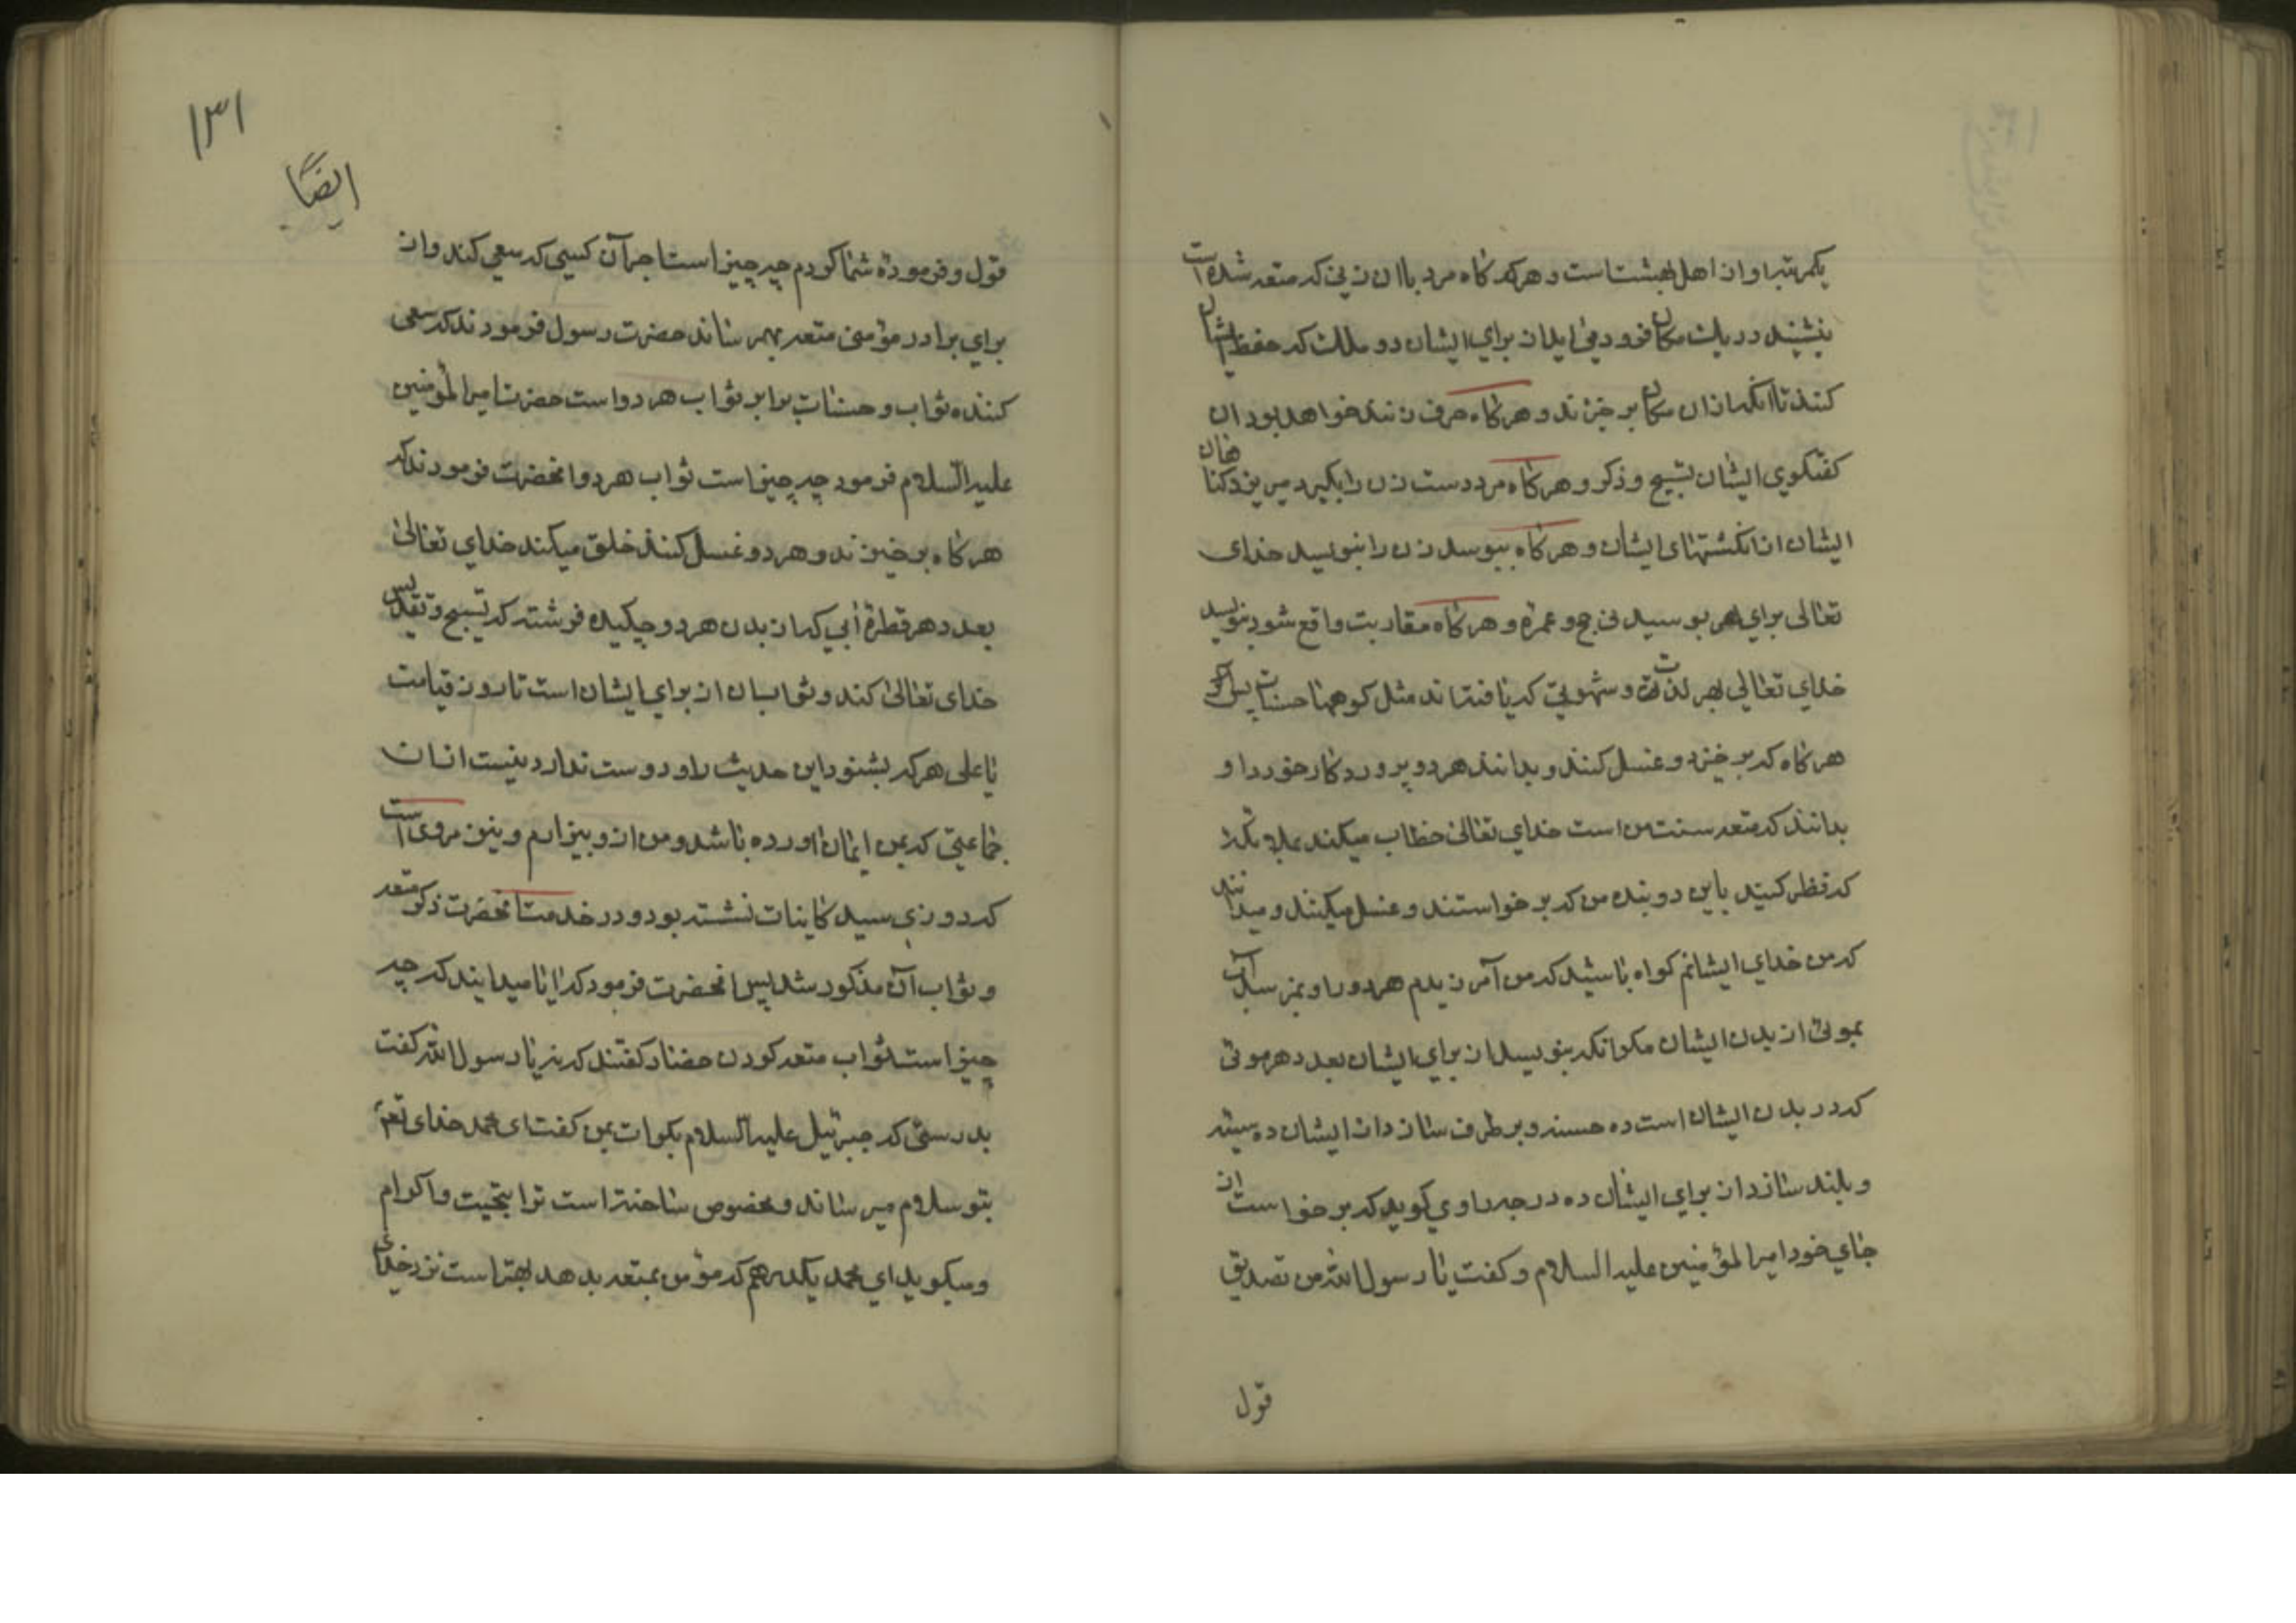 یکمرتبه او از اهل بهشتست و هرکه کاه مرد باان زنی که متعه شده است
بنشیند در یک مکان فرود می ایند از برای ایشان دو ملک که حفظ ایشان
کنند تا انکه از ان مکان بر خیزند و هرکاه حرف زنند خواهد بود ان
کفتکوی ایشان تسبیح و ذکر و هرکاه مرد دست زن را بکیرد میریزد کناهان
ایشان از انکشتهای ایشان و هرکاه ببوسد زن را بنویسد خدای
تعالی برای هر بوسیدنی حج و عمره و هرکاه مقاربت واقع شود بنویسد
خدای تعالی بهر لذت و شهوتی که یافته اند مثل کوهها حسنات پس اکر
هرکاه که بر خیزد و غسل کنند و بدانند هر دو پروردکار خود را و
بدانند که متعه سنت من است خدای تعالی خطاب میکند بملائکه
که نظر کنید باین دو بنده من که بر خواستند و غسل میکنند و میدانند
که من خدای ایشانم کواه باشید که من آمرزیدم هر دو را و نمیرسد آب
بموئی از بدن ایشان مکر انکه بنویسد از برای ایشان بعدد هر موئی
که در بدن ایشان است ده حسنه و بر طرف سازد از ایشان ده سیئه
و بلند سازد از برای ایشان ده درجه راوی کوید که بر خواست از
جای خود امیر المؤمنین علیه السلام و کفت یا رسول الله من تصدیق
قول
۱۳۱
ایضًا
قول و فرموده شما کردم چه چیز است اجر آن کسی که سعی کند و از
برای برادر مؤمنی متعه بهمرساند حضرت رسول فرمودند که سعی
کننده ثواب و حسنات برابر ثواب هر دو است حضرت امیر المؤمنین
علیه السلام فرمود چه چیز است ثواب هر دو انحضرت فرمودند که
هرکاه بر خیزند و هر دو غسل کنند خلق میکند خدای تعالی
بعدد هر قطرۀ آبی که از بدن هر دو چکیده فرشته که تسبیح و تقدیس
خدای تعالی کند و ثواب ان از برای ایشان است تا روز قیامت
یا علی هر که بشنود این حدیث را و دوست ندارد نیست از ان
جماعتی که بمن ایمان اورده باشد و من از و بیزارم و نیز مروی است
که روزی سید کاینات نشسته بود و در خدمت انحضرت ذکر متعه
و ثواب آن مذکور شد پس انحضرت فرمود که ایا میدانید که چه
چیز است ثواب متعه کردن حضار کفتند که نه یا رسول الله کفت
بدرستی که جبرئیل علیه السلام بکرات بمن کفت ای محمد خدای تعٰ
بتو سلام میرساند و مخصوص ساخته است ترا بتحیت و اکرام
و میکوید ای محمد یکدرهم که مؤمن بمتعه بدهد بهتر است نزد خدای